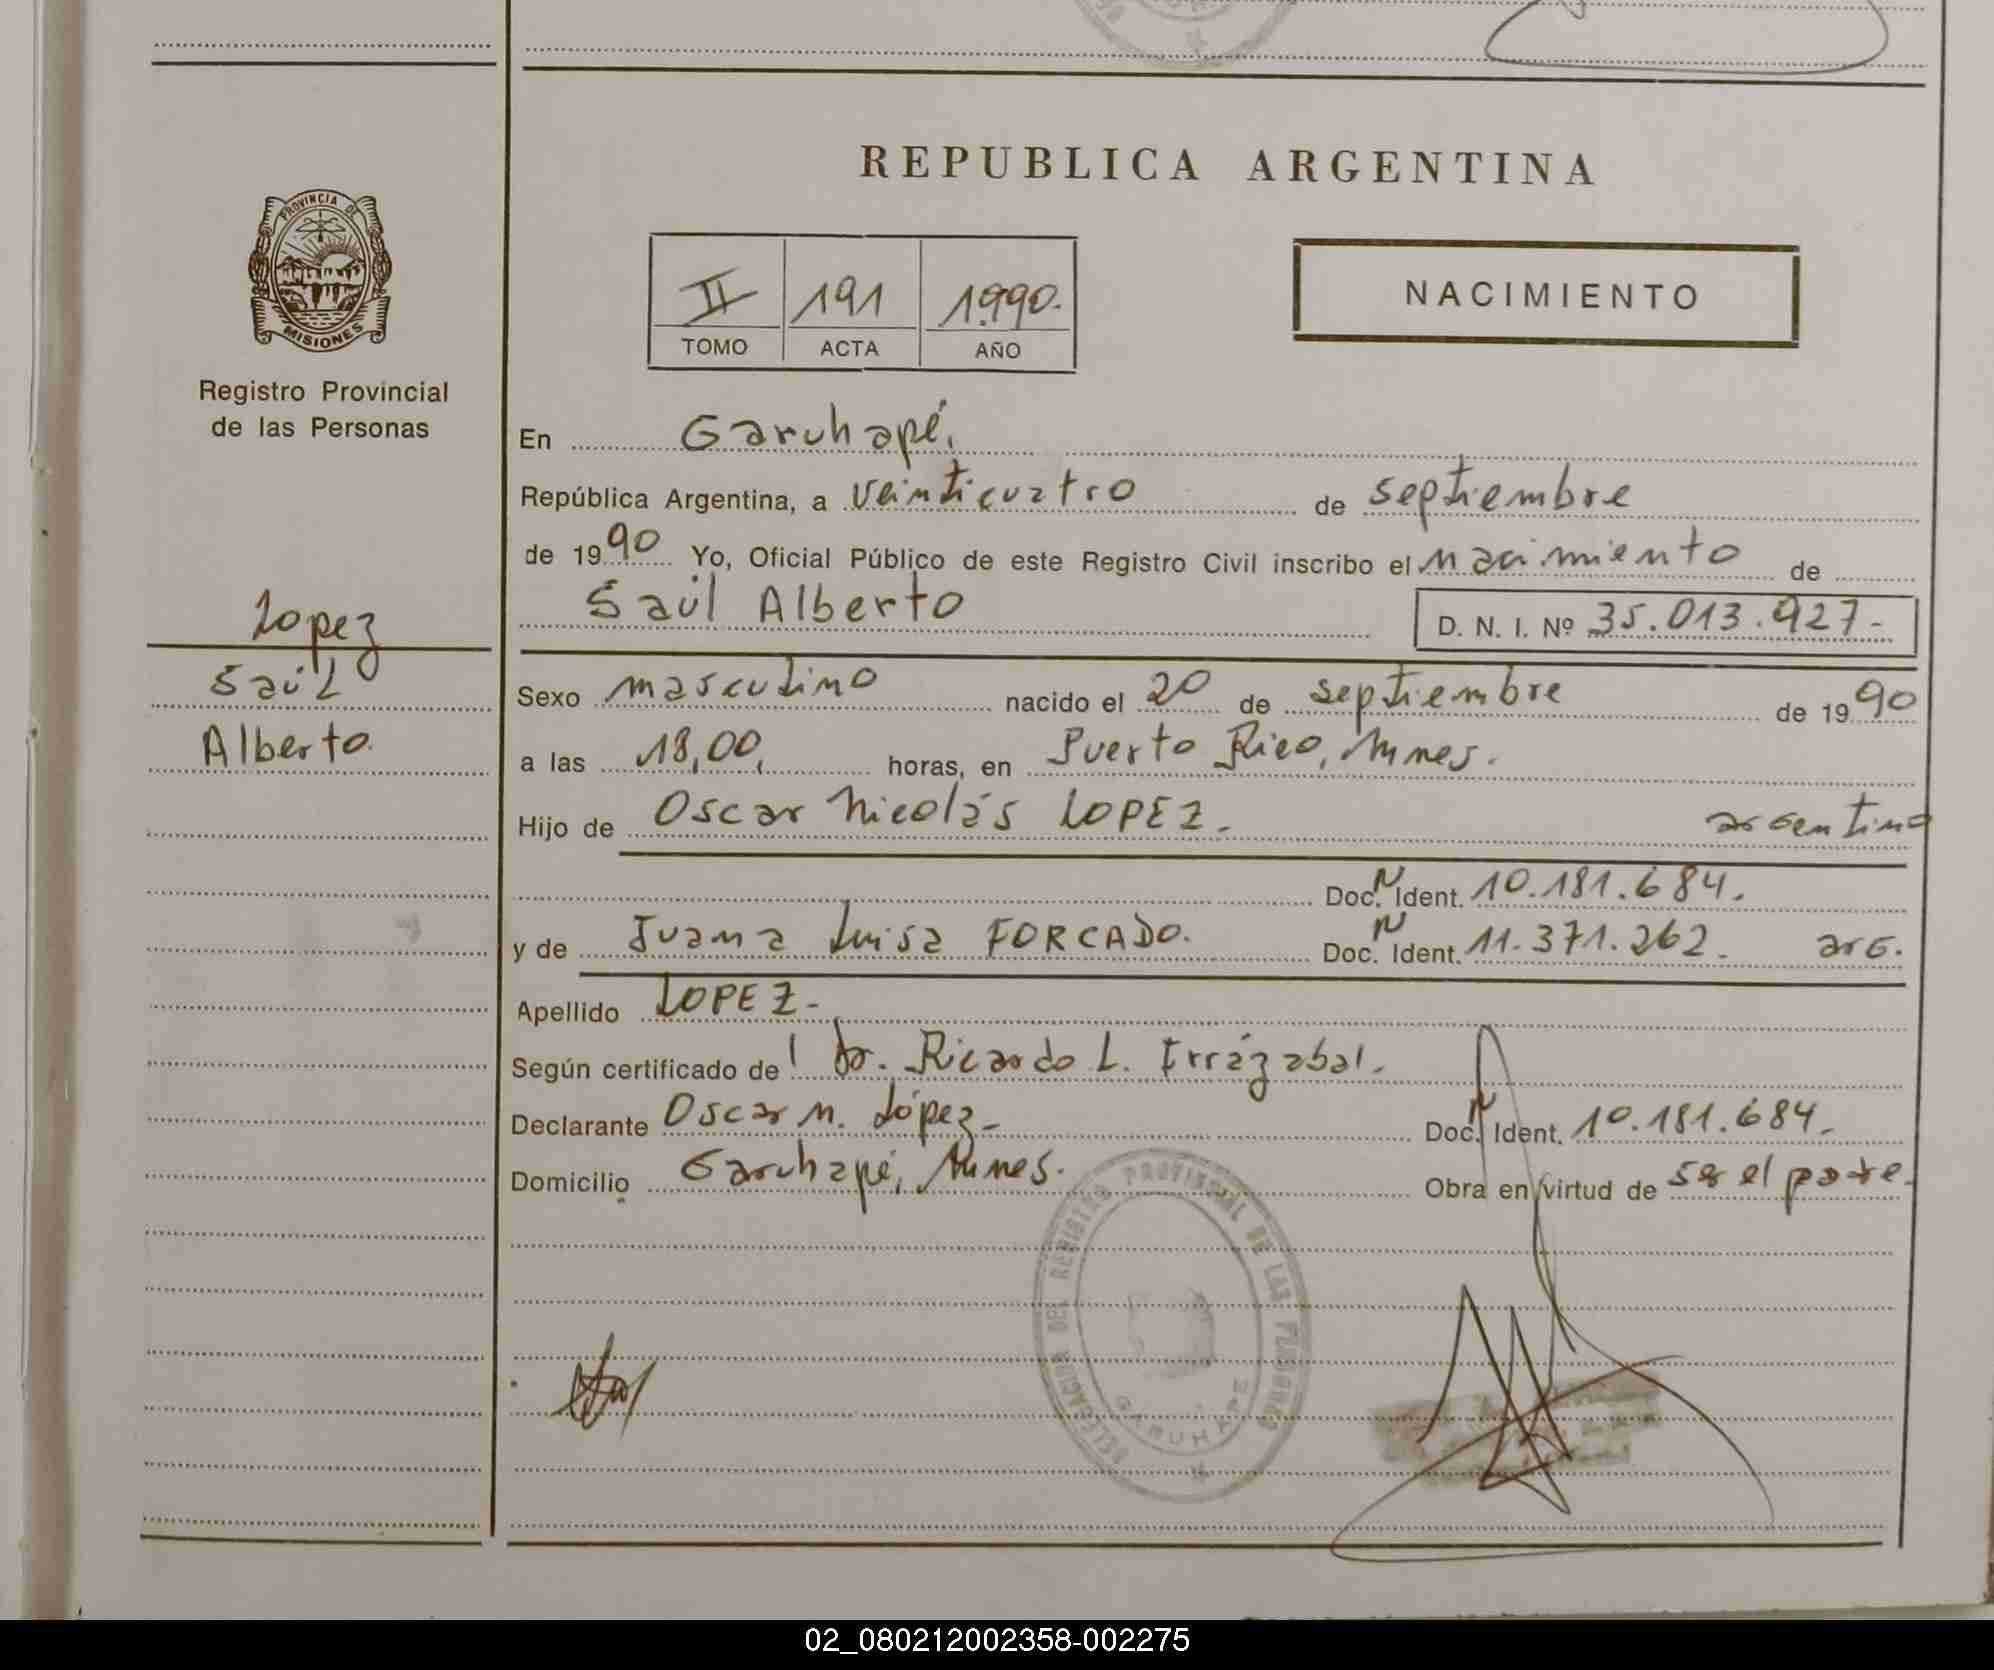 REPUBLICA ARGENTINA
PROVINCIA DE
MISIONES
Registro Provincial
de las Personas
II 191 1990.
TOMO ACTA AÑO
NACIMIENTO
En Garuhapé,
República Argentina, a veinticuatro de septiembre
de 1990 Yo, Oficial Público de este Registro Civil inscribo el nacimiento de
Saúl Alberto D. N. I. Nº 35.013.927-
Lopez
Saúl
Alberto.
Sexo masculino nacido el 20 de septiembre de 1990
a las 18,00, horas, en Puerto Rico, Mnes.
Hijo de Oscar Nicolás LOPEZ. argentino
Doc. N Ident. 10.181.684.
y de Juana Luisa FORCADO. Doc. N Ident. 11.371.262. arg.
Apellido LOPEZ-
Según certificado del Dr. Ricardo L. Irrázabal.
Declarante Oscar N. López- Doc. N Ident. 10.181.684.
Domicilio Garuhapé, Mnes. Obra en virtud de ser el padre.
DELEGACION DEL REGISTRO PROVINCIAL DE LAS PERSONAS
GARUHAPE
02_080212002358-002275